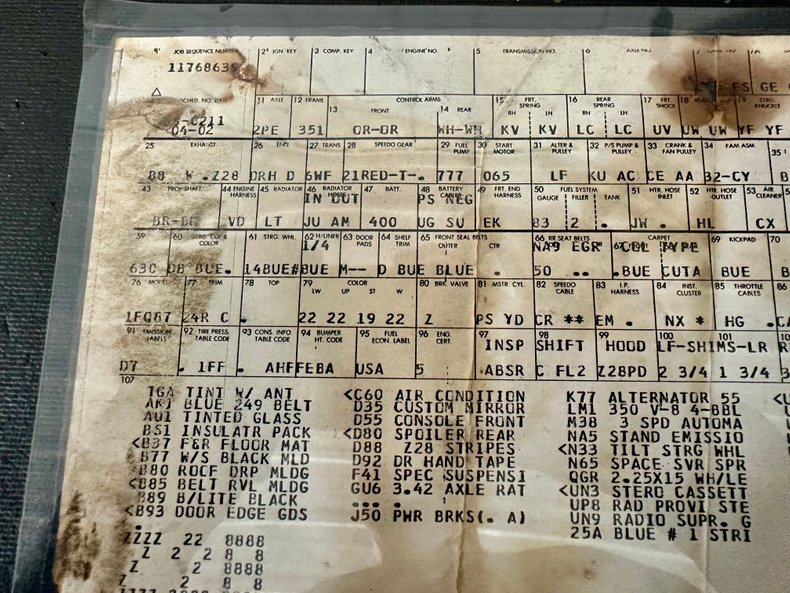 JOB SEQUENCE NUMBER 2 IGN. KEY 3 COMP. KEY 4 ENGINE NO. 5 TRANSMISSION NO. 6
11768635
GE
SCHED. NO. 11 AXLE 12 FRAME CONTROL ARMS 15 FRT. SPRING 16 REAR SPRING 17 FRT SHOCK 18 19 STRG KNUCKLE
13 FRONT 14 REAR RH LH RH LH
0211
04-02 2PE 351 OR-OR WH-WH KV KV LC LC UV UW UW YF YF
25 EXHAUST 26 ENG. 27 TRANS 28 SPEEDO GEAR 29 FUEL PUMP 30 START MOTOR 31 ALTER & PULLEY 32 P/S PUMP & PULLEY 33 CRANK & FAN PULLEY 34 FAM ASM 35
88 W .Z28 DRH D 6WF 21RED-T-. 777 065 LF KU AC CE AA B2-CY
43 PROPSHAFT 44 ENGINE HARNESS 45 RADIATOR 46 RADIATOR HOSE 47 BATT. 48 BATTERY CABLES 49 FRT. END HARNESS 50 FUEL SYSTEM 51 HTR. HOSE INLET 52 HTR HOSE OUTLET 53 AIR CLEANER
GAUGE FILLER TANK
IN OUT PS NEG
VD LT JU AM 400 UG SU EK 83 2 . JW . HL CX
59 60 STRG COL & COLOR 61 STRG WHL 62 H/LINER 63 DOOR PADS 64 SHELF TRIM 65 FRONT SEAT BELTS 66 RR SEAT BELTS CARPET 69 KICKPAD 70
OUTER CTR
1/4 NA9 EGR COL TYPE
630 DB BUE. 14BUE# BUE M-- D BUE BLUE . 50 .. .BUE CUTA BUE
76 MODEL 77 TRIM 78 TOP 79 COLOR 80 BRK VALVE 81 MSTR. CYL. 82 SPEEDO CABLE 83 I.P. HARNESS 84 INST. CLUSTER 85 THROTTLE CABLES 86
LW UP ST W
1FQ87 24R C . 22 22 19 22 Z PS YD CR ** EM . NX * HG .CA
91 EMISSION LABELS 92 TIRE PRESS. TABLE CODE 93 CONS. INFO. TABLE CODE 94 BUMPER HT. CODE 95 FUEL ECON. LABEL 96 ENG. CERT. 97 98 99 100 101 102
INSP SHIFT HOOD LF-SHIMS-LR
D7 . 1FF . AHF FEBA USA 5 ABSR C FL2 Z28PD 2 3/4 1 3/4
107
1GA TINT W/ ANT <C60 AIR CONDITION K77 ALTERNATOR 55
AK1 BLUE 249 BELT D35 CUSTOM MIRROR LM1 350 V-8 4-BBL
A01 TINTED GLASS D55 CONSOLE FRONT M38 3 SPD AUTOMA
BS1 INSULATR PACK <D80 SPOILER REAR NA5 STAND EMISSIO
<B37 F&R FLOOR MAT D88 Z28 STRIPES <N33 TILT STRG WHL
B77 W/S BLACK MLD D92 DR HAND TAPE N65 SPACE SVR SPR
B80 ROOF DRP MLDG F41 SPEC SUSPENSI QGR 2.25X15 WH/LE
<B85 BELT RVL MLDG GU6 3.42 AXLE RAT <UN3 STERO CASSETT
B89 B/LITE BLACK UP8 RAD PROVI STE
<B93 DOOR EDGE GDS J50 PWR BRKS(. A) UN9 RADIO SUPR. G
25A BLUE # 1 STRI
ZZZZ 22 8888
Z 2 2 8 8
Z 2 8888
Z 2 8 8